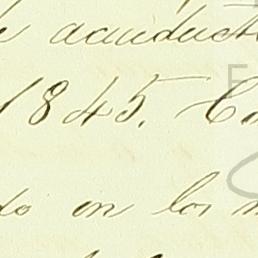 acueduct
1845. C
do en los